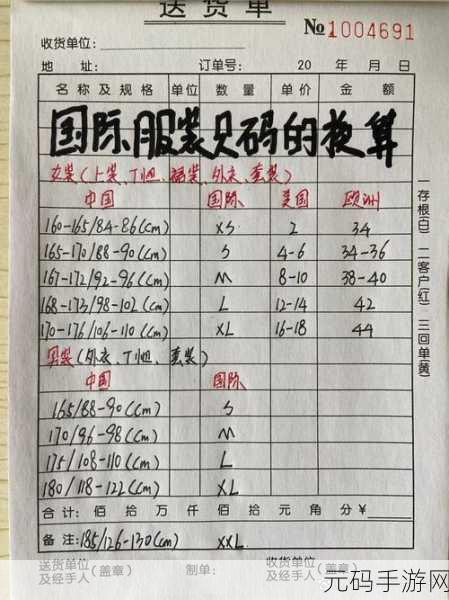 送货单
No 1004691
收货单位:
地 址: 订单号: 20 年 月 日
名称及规格 单位 数量 单价 金额
国际服装尺码的换算
女装(上装、T恤、裙装、外衣、套装)
中国 国际 美国 欧洲
160-165/84-86(cm) XS 2 34
165-170/88-90(cm) S 4-6 34-36
167-172/92-96(cm) M 8-10 38-40
168-173/98-102(cm) L 12-14 42
170-176/106-110(cm) XL 16-18 44
男装(外衣、T恤、套装)
中国 国际
165/88-90(cm) S
170/96-98(cm) M
175/108-110(cm) L
180/118-122(cm) XL
合计: 佰 拾 万 仟 佰 拾 元 角 分￥
备注: 185/126-130(cm) XXL
送货单位及经手人(盖章) 制单: 收货单位及经手人(盖章)
一存根(白) 二客户(红) 三回单(黄)
元码手游网